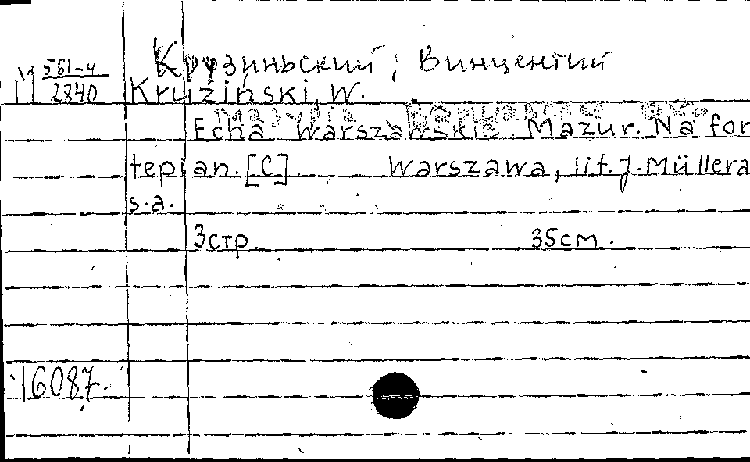 Крузиньский, Винцентий
М 561-4
2840
Kruziński, W.
Echa Warszawskie Mazur. Na for
tepian. [C] Warszawa, lit. J. Müllera
s.a.
3 стр. 35 см.
16087.